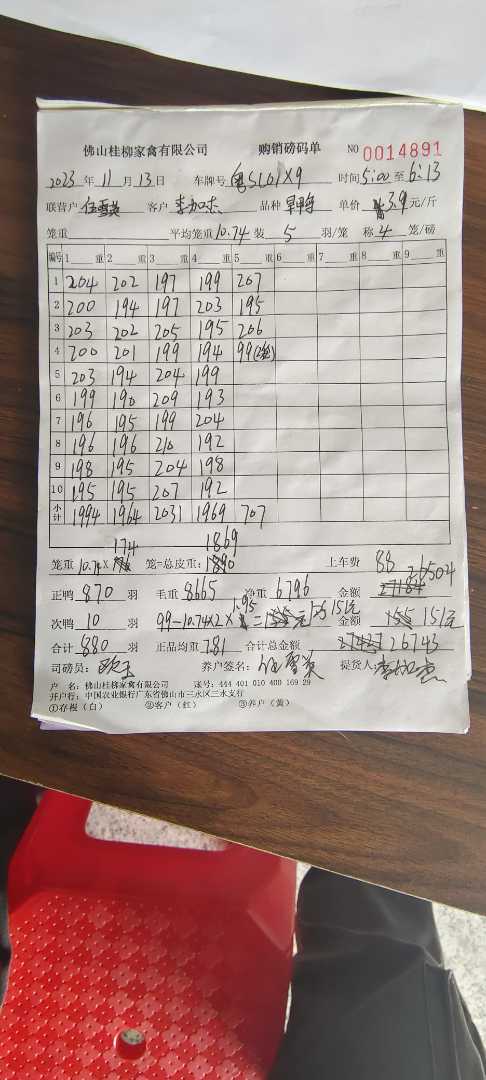 佛山桂柳家禽有限公司 购销磅码单 NO 0014891
2023年 11月 13日 车牌号 粤SL01X9 时间 5:00 至 6:13
联营户 伍雪英 客户 李加杰 品种 单价 3.9 元/斤
笼重 平均笼重 10.74 装 5 羽/笼 称 4 笼/磅
编号 1 重 2 重 3 重 4 重 5 重 6 重 7 重 8 重 9 重
1 204 202 197 199 207
2 200 194 197 203 195
3 203 202 205 195 206
4 200 201 199 194 99
5 203 194 204 199
6 199 190 209 193
7 196 195 199 204
8 196 196 210 192
9 198 195 204 198
10 195 195 207 192
小计 1994 1964 2031 1969 707
174 1869
笼重 10.74 X 笼=总皮重: 上车费 88 26504
正鸭 870 羽 毛重 8665 净重 6796 金额 27184
次鸭 10 羽 99-10.74×2× 1.95 = 155元 151元 金额 155 151元
合计 880 羽 正品均重 7.81 合计总金额 27427 26743
司磅员: 养户签名: 伍雪英 提货人: 李加杰
户 名: 佛山桂柳家禽有限公司 账号: 444 401 010 400 169 29
开户行: 中国农业银行广东省佛山市三水区三水支行
①存根（白） ②客户（红） ③养户（黄）